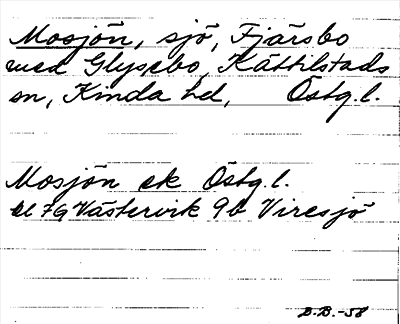 Mosjön, sjö, Fjärsbo
med Glysebo, Kättilstads
sn, Kinda hd, Östg.l.
Mosjön ek Östg.l.
bl 7G Västervik 9b Viresjö
B.B.-58